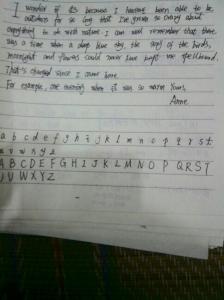 I wonder if it's because I haven't been able to be
outdoors for so long that I've grown so crazy about
everything to do with nature. I can well remember that there
was a time when a deep blue sky, the song of the birds,
moonlight and flowers could never have kept me spellbound.
That's changed since I came here.
For example, one evening when it was so warm Yours,
Anne
a b c d e f g h i j k l m n o p q r s t
u v w x y z
A B C D E F G H I J K L M N O P Q R S T
U V W X Y Z